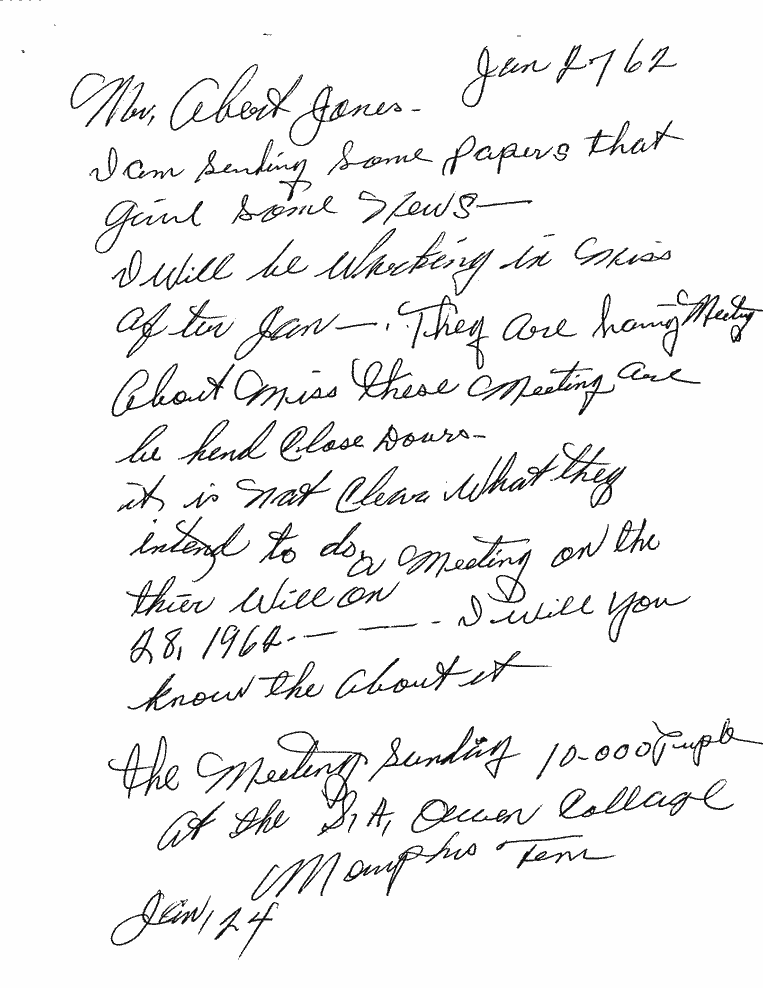 Jan 27 62
Mr, Abert Jones-
I am sending some papers that
give some News—
I will be working in Miss
after Jan—. They are having Meeting
About Miss these Meeting are
be hend Close Dours-
it is nat Clear What they
intend to do, a Meeting on the
thier Will on
28, 1962.— — - I will You
know the about it
the Meeting Sunding 10-000 Peuple
at the S, A, Owen Collage
Memphis Tenn
Jan, 24